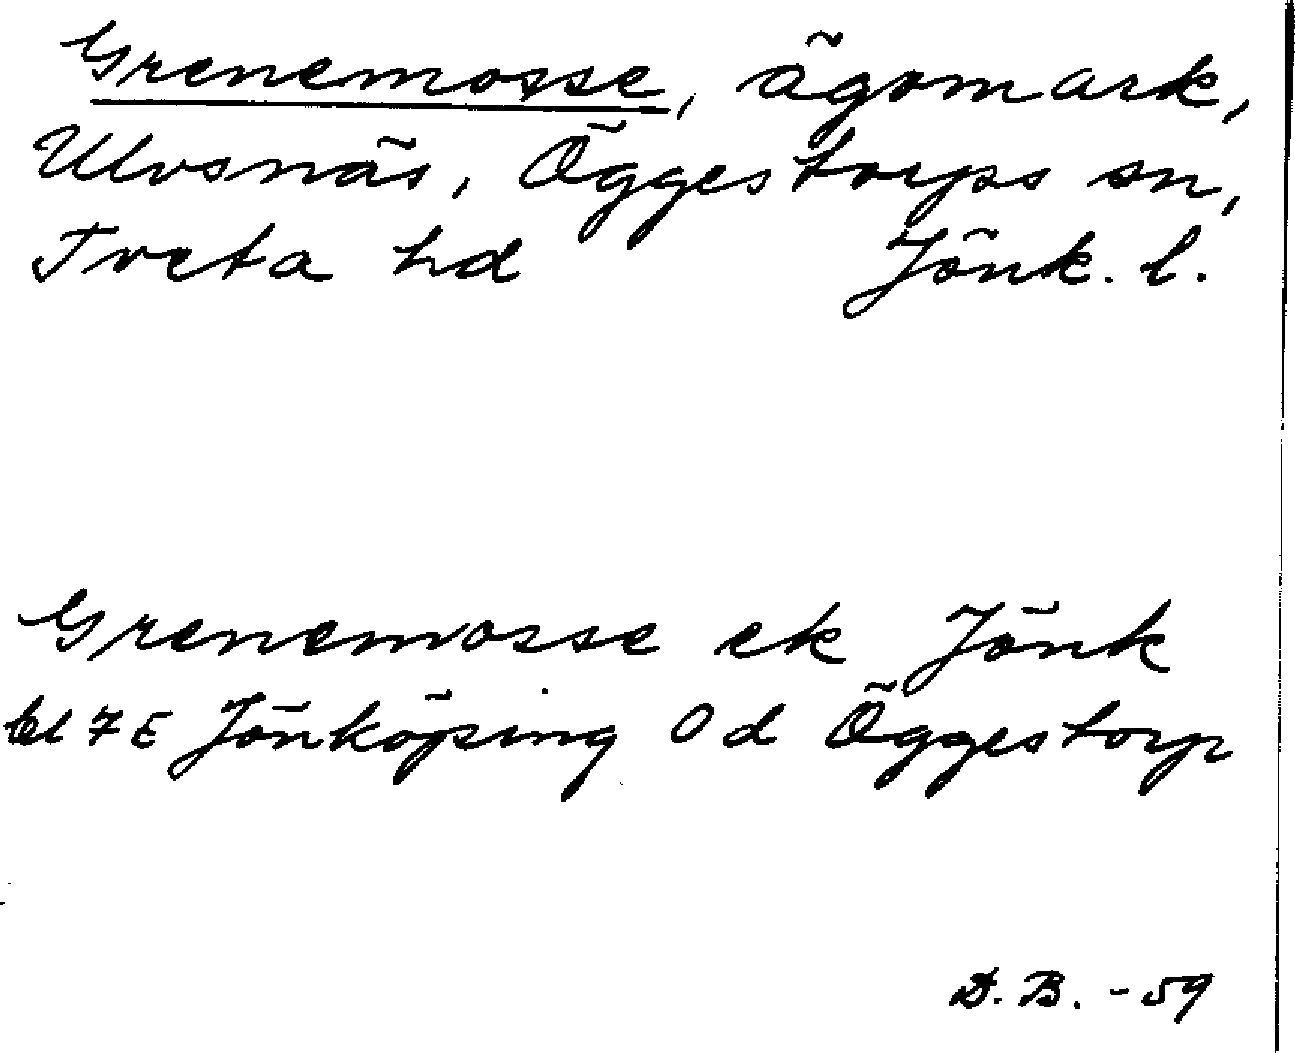 Grenemosse, ägomark,
Ulvsnäs, Öggestorps sn,
Tveta hd Jönk. l.
Grenemosse ek Jönk
bl 7E Jönköping Od Öggestorp
D. B. -59